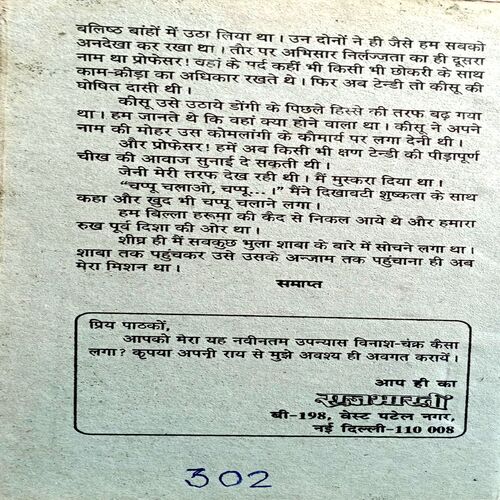 बलिष्ठ बांहों में उठा लिया था। उन दोनों ने ही जैसे हम सबको
अनदेखा कर रखा था। तौर पर अभिसार निर्लज्जता का ही दूसरा
नाम था प्रोफेसर! वहां के मर्द कहीं भी किसी भी छोकरी के साथ
काम-क्रीड़ा का अधिकार रखते थे। फिर अब टेन्डी तो कीसू की
घोषित दासी थी।
कीसू उसे उठाये डोंगी के पिछले हिस्से की तरफ बढ़ गया
था। हम जानते थे कि वहां क्या होने वाला था। कीसू ने अपने
नाम की मोहर उस कोमलांगी के कौमार्य पर लगा देनी थी।
और प्रोफेसर! हमें अब किसी भी क्षण टेन्डी की पीड़ापूर्ण
चीख की आवाज सुनाई दे सकती थी।
जेनी मेरी तरफ देख रही थी। मैं मुस्करा दिया था।
“चप्पू चलाओ, चप्पू...।” मैंने दिखावटी शुष्कता के साथ
कहा और खुद भी चप्पू चलाने लगा।
हम बिल्ला हरूमा की कैद से निकल आये थे और हमारा
रुख पूर्व दिशा की ओर था।
शीघ्र ही मैं सबकुछ भुला शाबा के बारे में सोचने लगा था।
शाबा तक पहुंचकर उसे उसके अन्जाम तक पहुंचाना ही अब
मेरा मिशन था।
समाप्त
प्रिय पाठकों,
आपको मेरा यह नवीनतम उपन्यास विनाश-चक्र कैसा
लगा? कृपया अपनी राय से मुझे अवश्य ही अवगत करायें।
आप ही का
राजभारती
बी-198, वेस्ट पटेल नगर,
नई दिल्ली-110 008
302